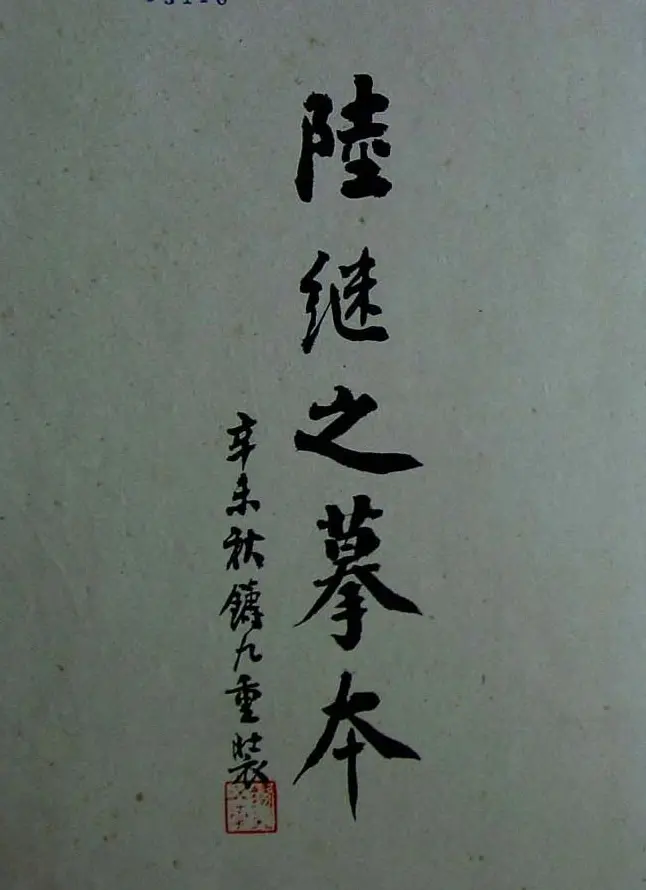 陸继之摹本
辛未秋鑄九重裝